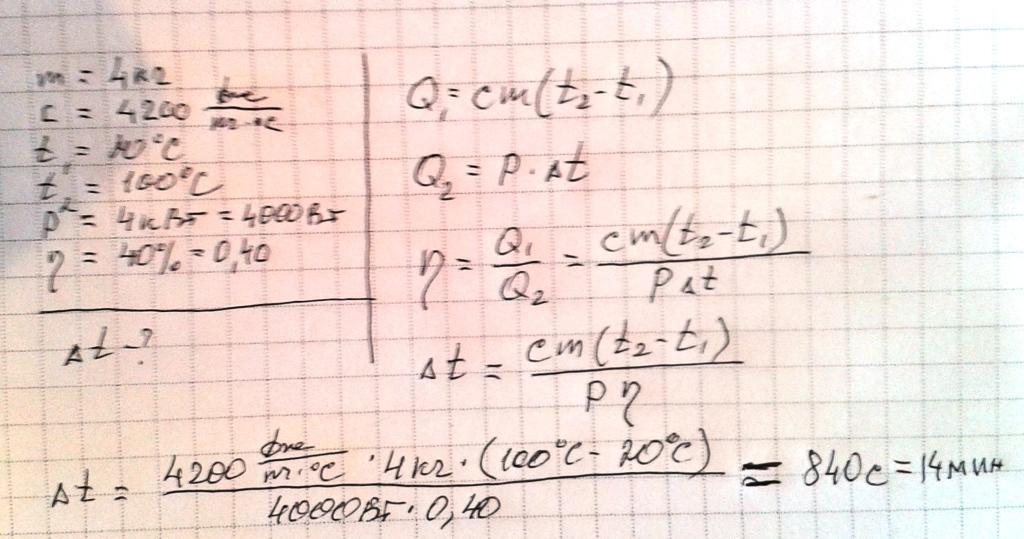 m = 4кг
c = 4200 Дж/кг·°C
t₁ = 20°C
t₂ = 100°C
P = 4кВт = 4000Вт
η = 40% = 0,40
Δt - ?
Q₁ = cm(t₂-t₁)
Q₂ = P · Δt
η = Q₁/Q₂ = cm(t₂-t₁)/PΔt
Δt = cm(t₂-t₁)/Pη
Δt = 4200 Дж/кг·°C · 4кг · (100°C - 20°C)/4000Вт · 0,40 = 840с = 14мин